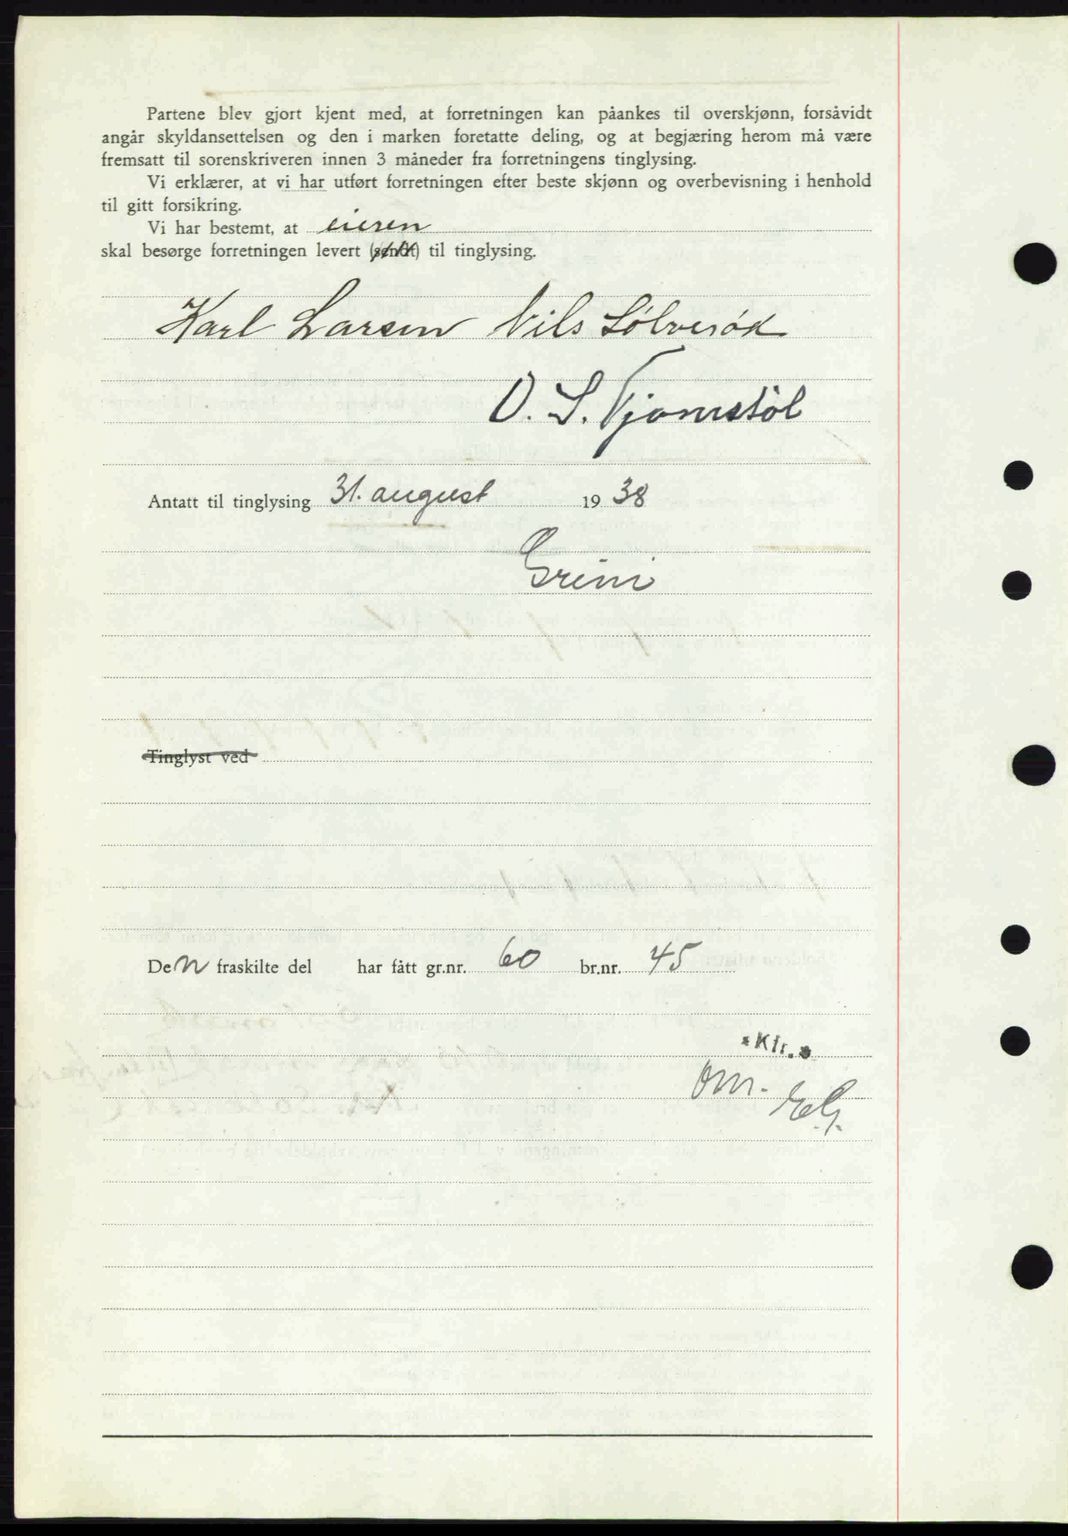 Partene blev gjort kjent med, at forretningen kan påankes til overskjønn, forsåvidt
angår skyldansettelsen og den i marken foretatte deling, og at begjæring herom må være
fremsatt til sorenskriveren innen 3 måneder fra forretningens tinglysing.
Vi erklærer, at vi har utført forretningen efter beste skjønn og overbevisning i henhold
til gitt forsikring.
Vi har bestemt, at eieren
skal besørge forretningen levert (sendt) til tinglysing.
Karl Larsen Nils Sølvesøk
O. S. Tjomstøl
Antatt til tinglysing 31. august 1938
Grini
Tinglyst ved
Den fraskilte del har fått gr.nr. 60 br.nr. 45
Ktr.
OM. EG.